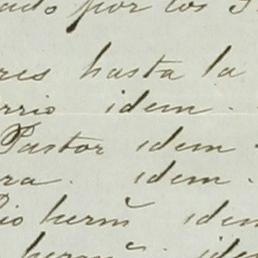 ado por los
res hasta la
rrio idem.
Pastor idem
ra. idem.
Pio herm~ idem
herm~ idem